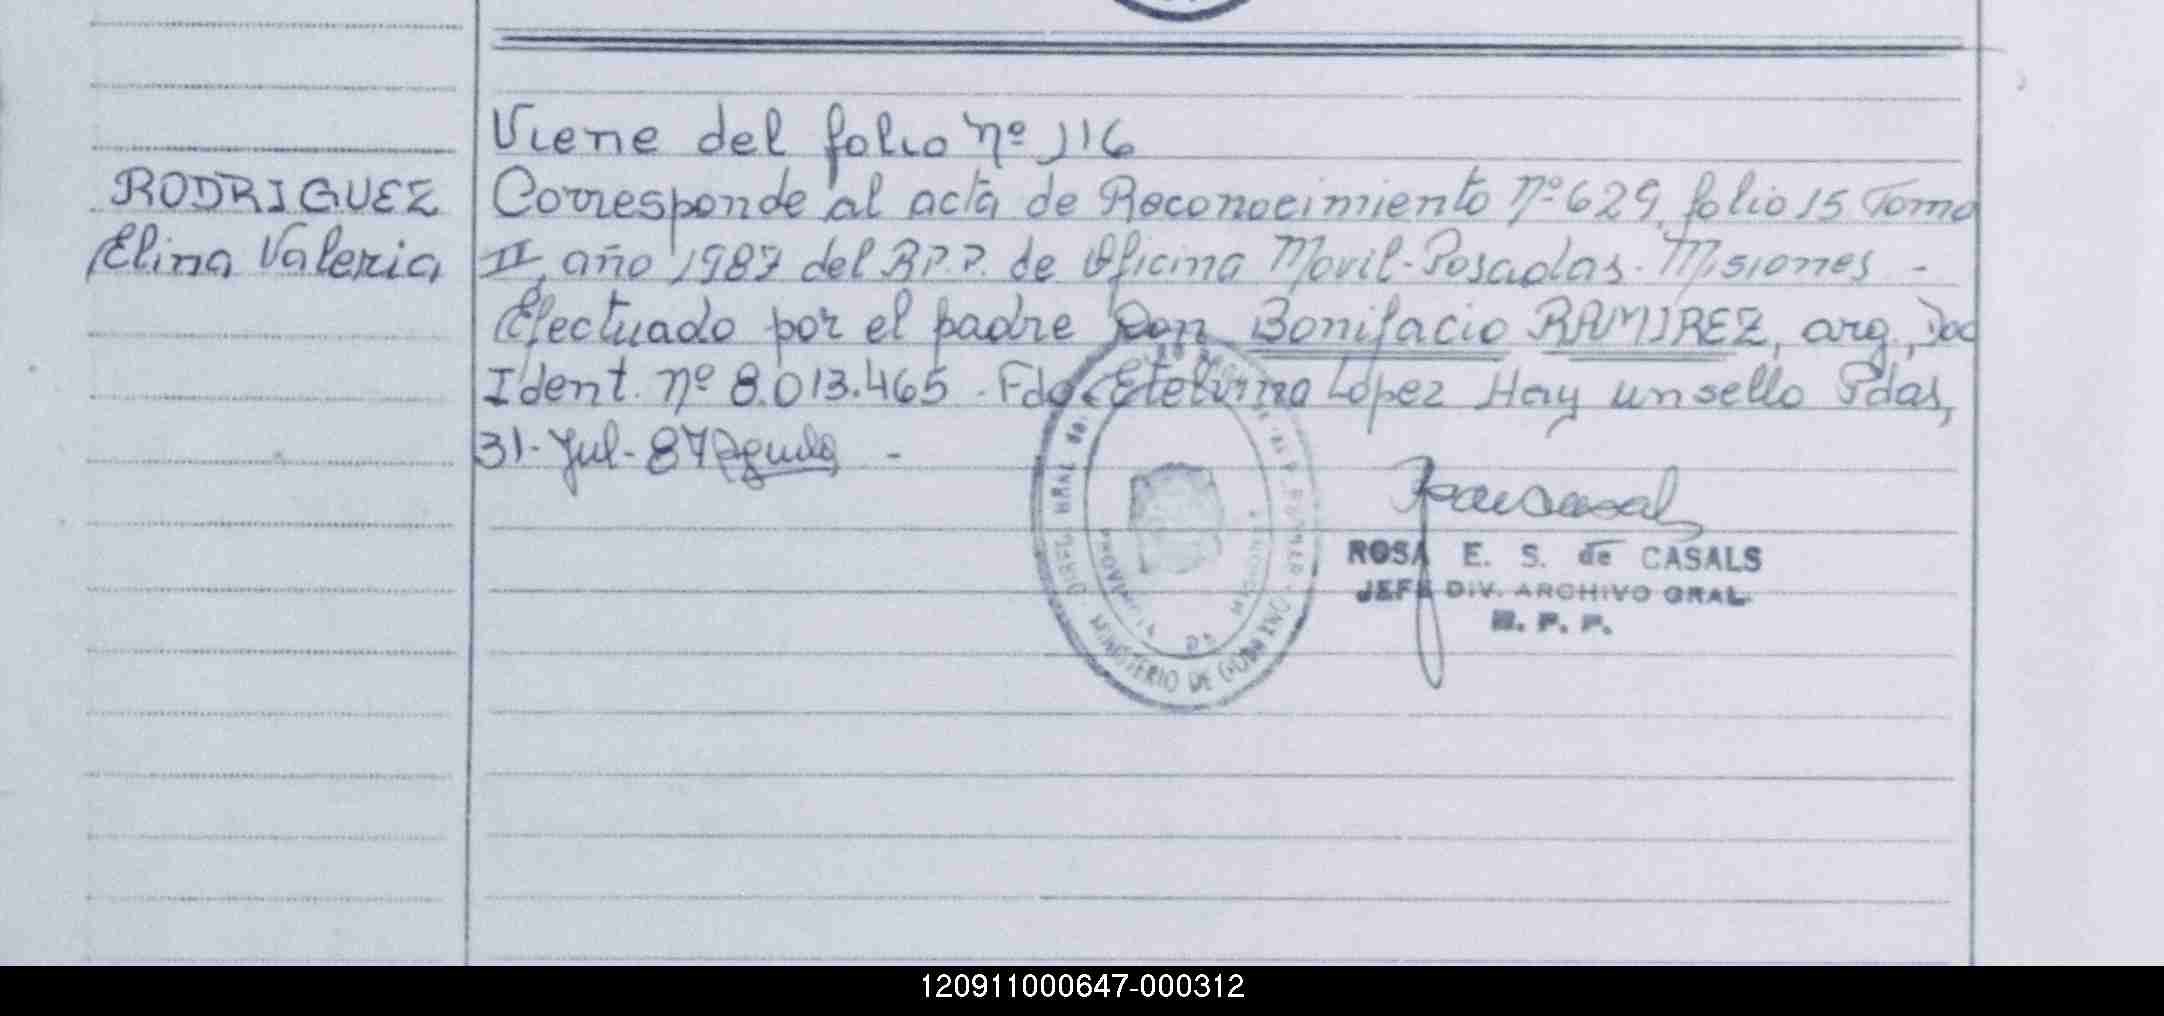 Viene del folio nº 116
RODRIGUEZ
Elina Valeria
Corresponde al acta de Reconocimiento Nº 629, folio 15 Tomo
II, año 1987 del R.P.P. de Oficina Movil-Posadas-Misiones -
Efectuado por el padre Don Bonifacio RAMIREZ, arg, Doc
Ident. nº 8.013.465 - Fdo Etelvina López Hay un sello Pdas,
31-Jul-87 -
ROSA E. S. de CASALS
JEFE DIV. ARCHIVO GRAL.
R. P. P.
PROVINCIA DE MISIONES
MINISTERIO DE GOBIERNO
120911000647-000312